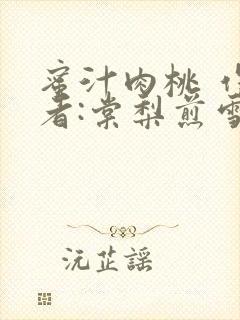 蜜汁肉桃
者:棠梨煎雪
沅芷謡